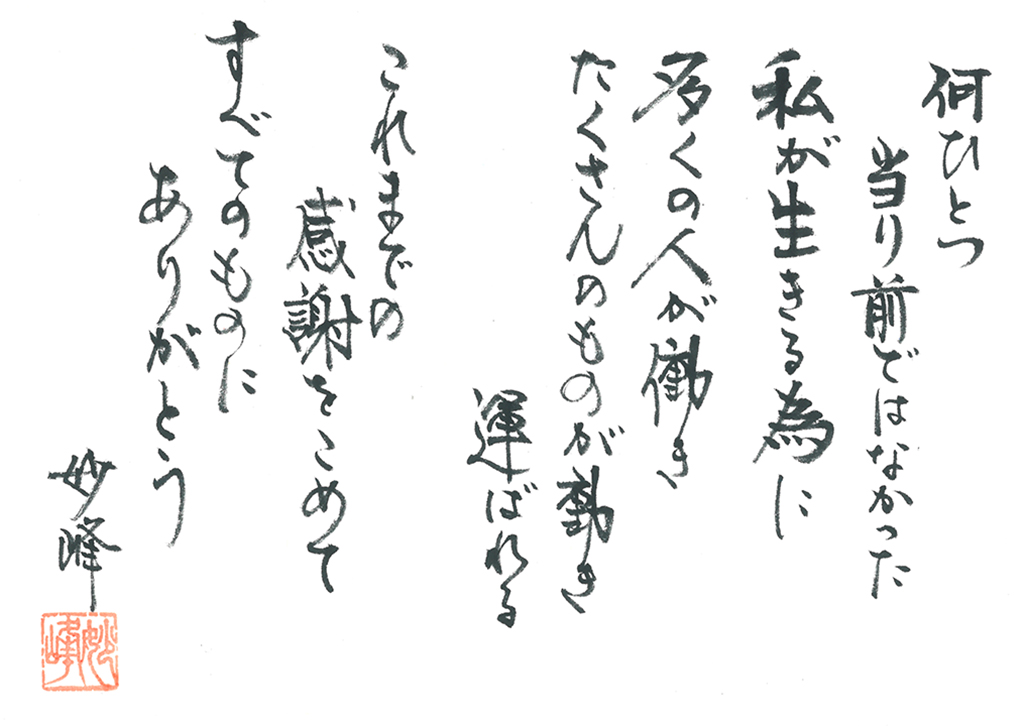 何ひとつ
当り前ではなかった
私が生きる為に
多くの人が働き
たくさんのものが動き
運ばれる
これまでの
感謝をこめて
すべてのものに
ありがとう
妙峰
妙峰